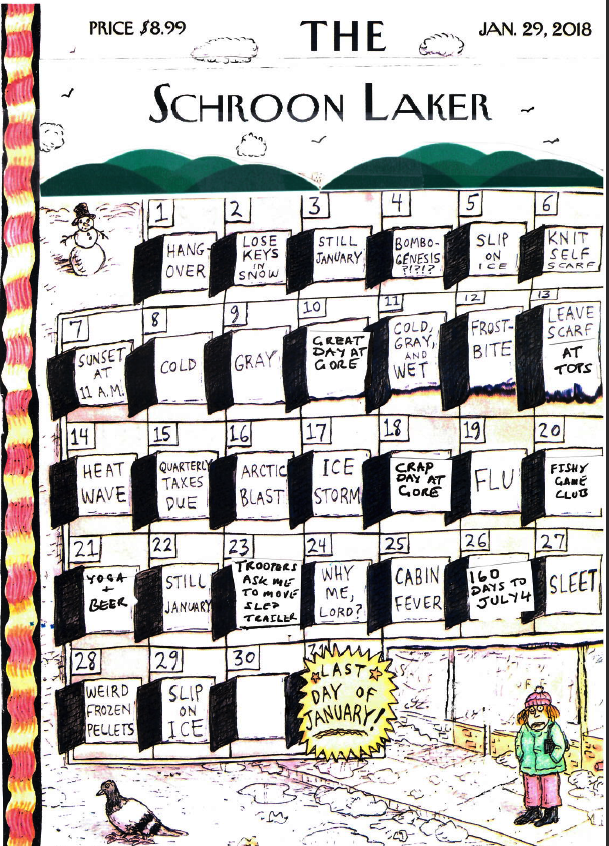 PRICE $8.99
THE
JAN. 29, 2018
SCHROON LAKER
1
HANG-
OVER
2
LOSE
KEYS
IN
SNOW
3
STILL
JANUARY
4
BOMBO-
GENESIS
?!?!?
5
SLIP
ON
ICE
6
KNIT
SELF
SCARF
7
SUNSET
AT
11 A.M.
8
COLD
9
GRAY
10
GREAT
DAY AT
GORE
11
COLD,
GRAY,
AND
WET
12
FROST-
BITE
13
LEAVE
SCARF
AT
TOPS
14
HEAT
WAVE
15
QUARTERLY
TAXES
DUE
16
ARCTIC
BLAST
17
ICE
STORM
18
CRAP
DAY AT
GORE
19
FLU
20
FISHY
GAME
CLUB
21
YOGA
+
BEER
22
STILL
JANUARY
23
TROOPERS
ASK ME
TO MOVE
SLED
TRAILER
24
WHY
ME,
LORD?
25
CABIN
FEVER
26
160
DAYS TO
JULY 4
27
SLEET
28
WEIRD
FROZEN
PELLETS
29
SLIP
ON
ICE
30
31
LAST
DAY OF
JANUARY!